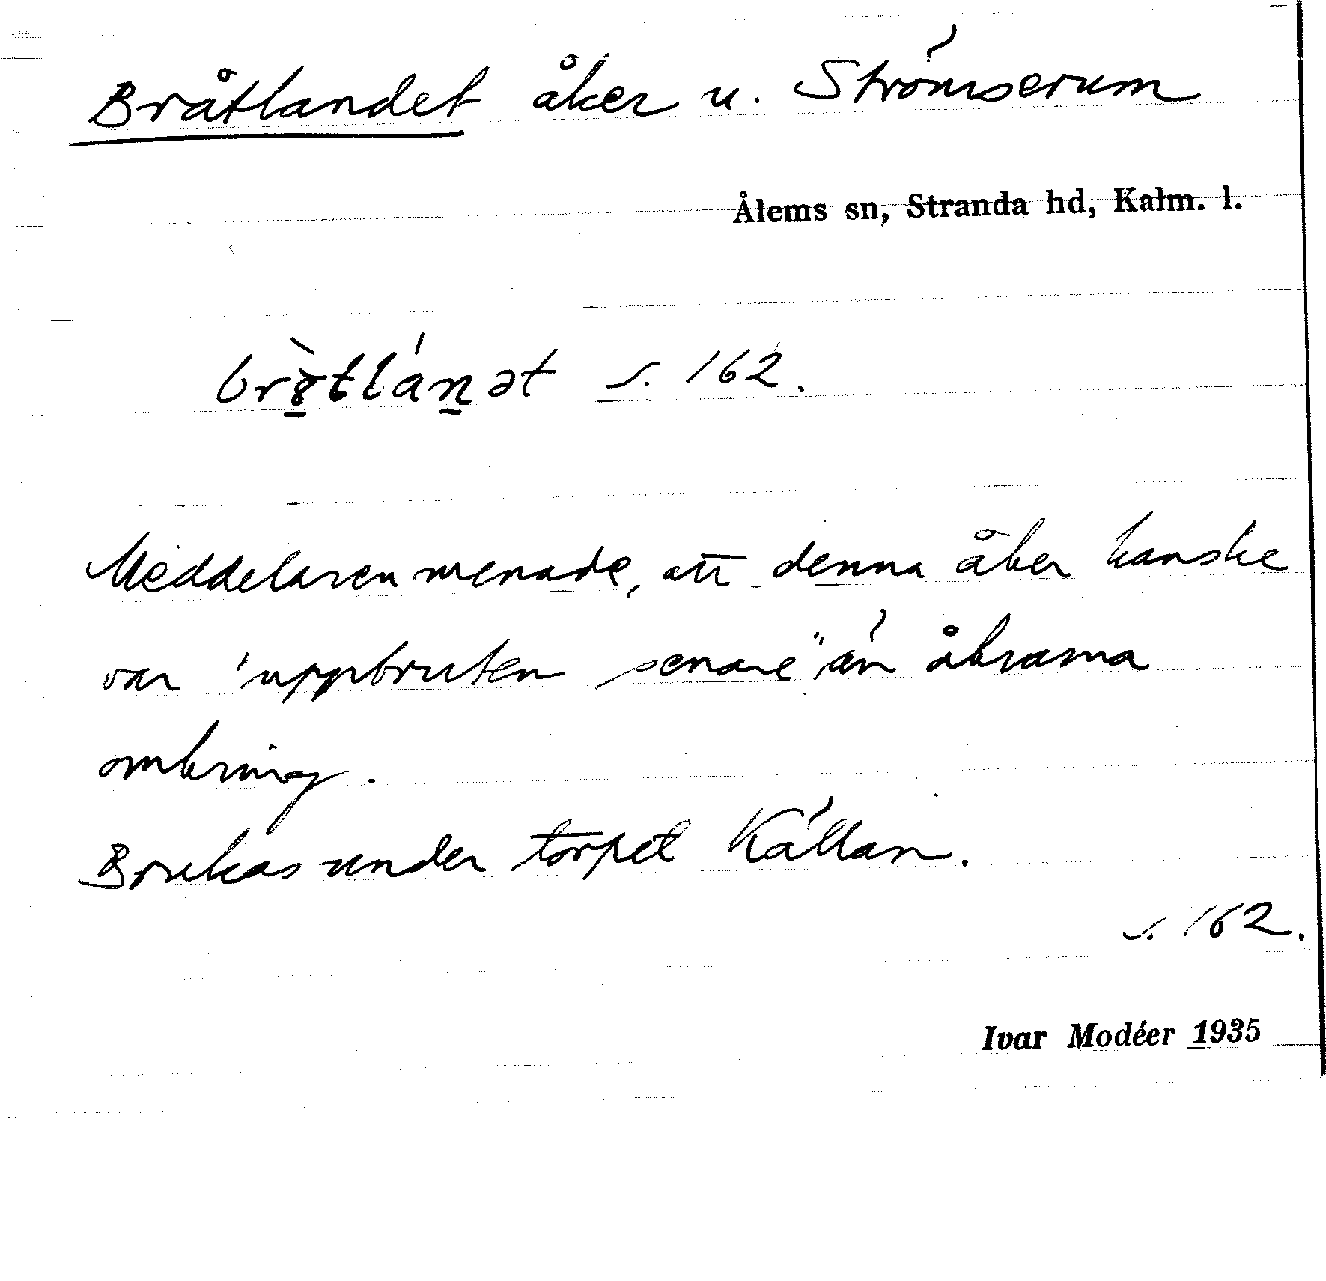 Bråtlandet åker u. Strömserum
Ålems sn, Stranda hd, Kalm. l.
s. 162.
Meddelaren menade, att denna åker kanske
var "uppbruten senare" än åkrarna
omkring.
Brukas under torpet Källan.
s. 162.
Ivar Modéer 1935